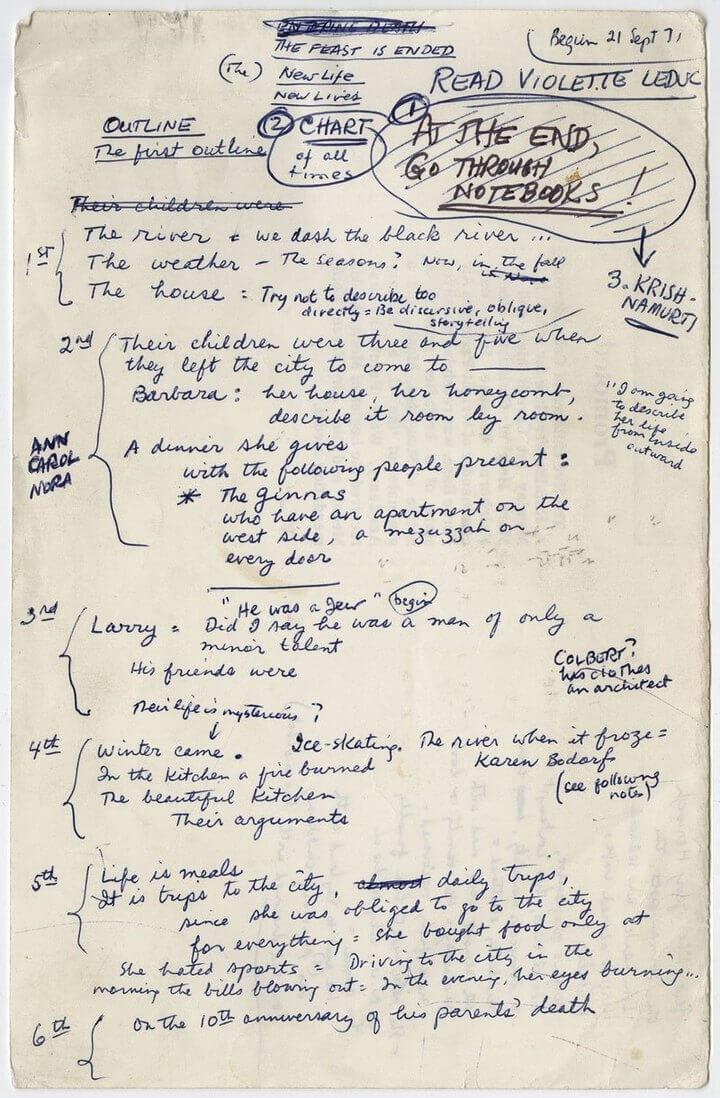 THE FEAST IS ENDED
(The) New Life
New Lives
Begun 21 Sept 71
READ VIOLETTE LEDUC
OUTLINE
The first outline
② CHART
of all
times
① AT THE END,
GO THROUGH
NOTEBOOKS!
3. KRISH-
NAMURTI
Their children were
1st
The river = we dash the black river ...
The weather - The seasons? Now, in the fall
The house = Try not to describe too
directly = Be discursive, oblique,
storytelling
2nd
Their children were three and five when
they left the city to come to ______
Barbara : her house, her honeycomb,
describe it room by room.
"I am going
to describe
her life
from inside
outward
ANN
CAROL
NORA
A dinner she gives
with the following people present :
* The Ginnas
who have an apartment on the
west side, a mezuzzah on
every door
3rd
"He was a Jew" begin
Larry = Did I say he was a man of only a
minor talent
His friends were
COLBERT?
has clothes
an architect
Their life is mysterious?
4th
Winter came. Ice-skating. The river when it froze =
Karen Bodorfs
In the kitchen a fire burned
(see following
notes)
The beautiful kitchen
Their arguments
5th
Life is meals
It is trips to the city, almost daily trips,
since she was obliged to go to the city
for everything = she bought food only at
She hated sports = Driving to the city in the
morning the bills blowing out = In the evening, her eyes burning...
6th
On the 10th anniversary of his parents' death